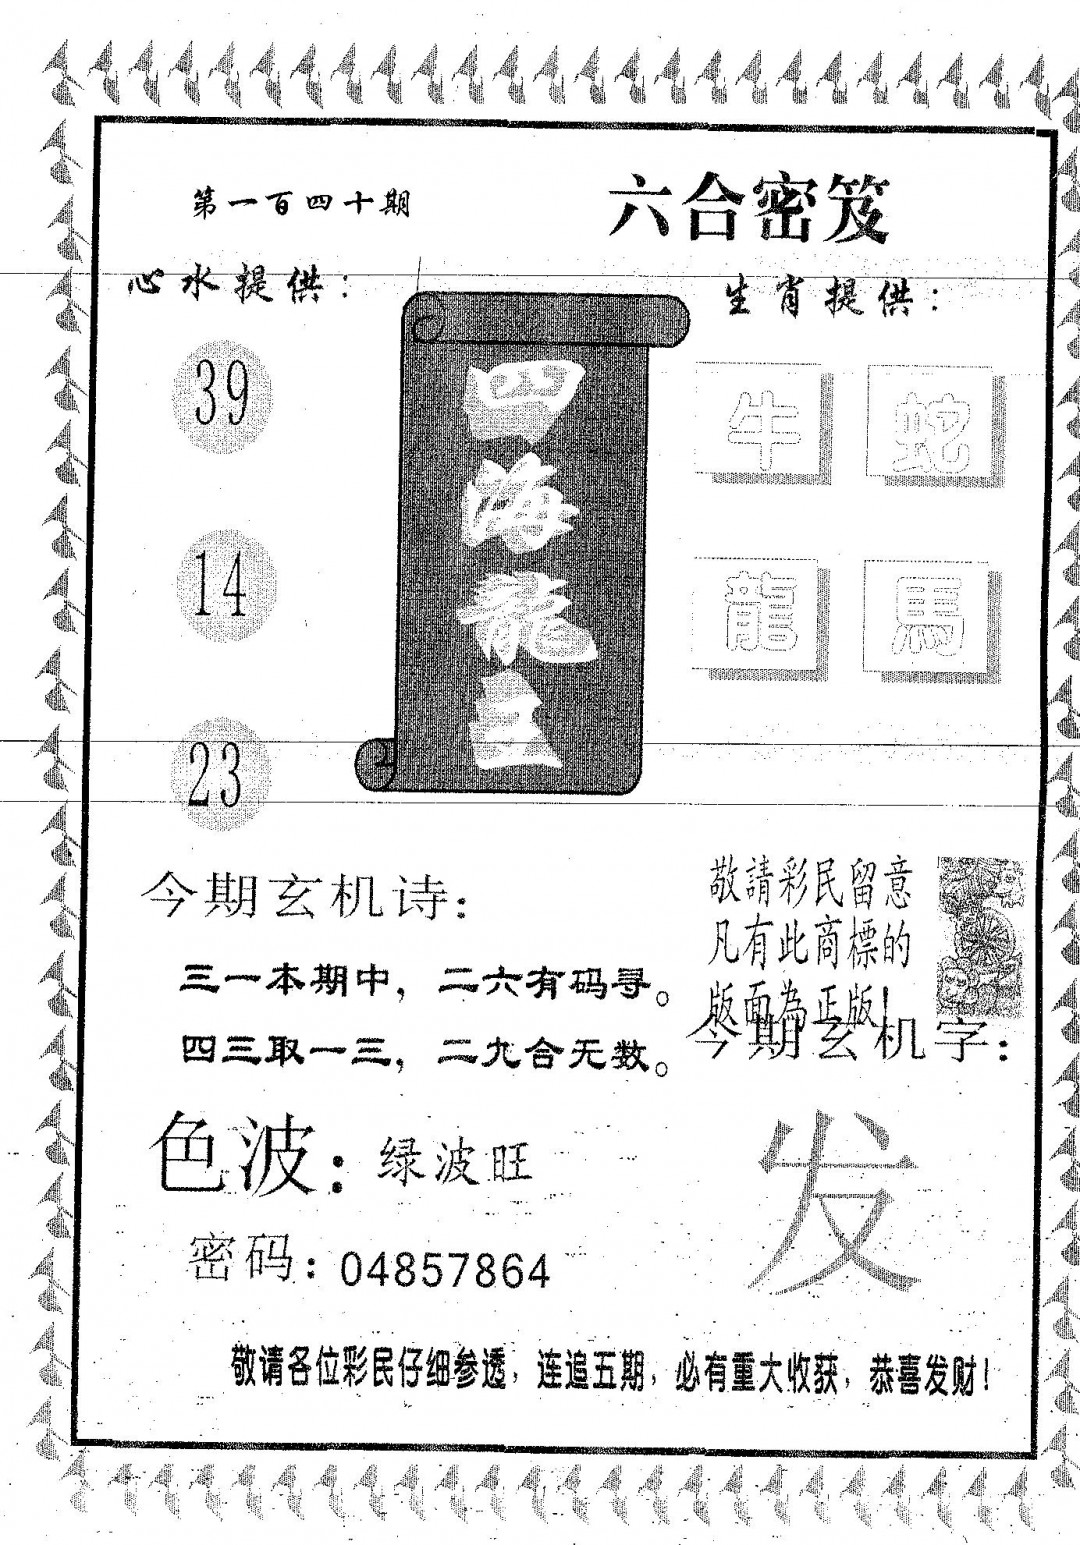 第一百四十期
六合密笈
心水提供：
生肖提供：
39
14
23
四海龍王
牛
蛇
龍
馬
今期玄机诗：
三一本期中，二六有码寻。
四三取一三，二九合无数。
敬請彩民留意
凡有此商標的
版面為正版！
今期玄机字：
发
色波：绿波旺
密码：04857864
敬请各位彩民仔细参透，连追五期，必有重大收获，恭喜发财！